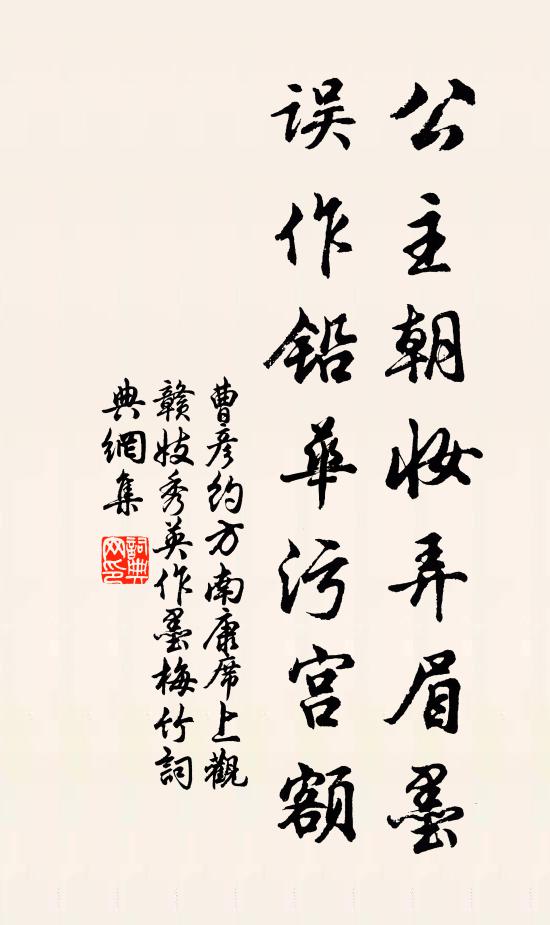 公主朝妆弄眉墨
误作铅华污宫额
曹彦约方南康席上觀
赣妓秀英作墨梅竹詞
典網集
詞典
网印